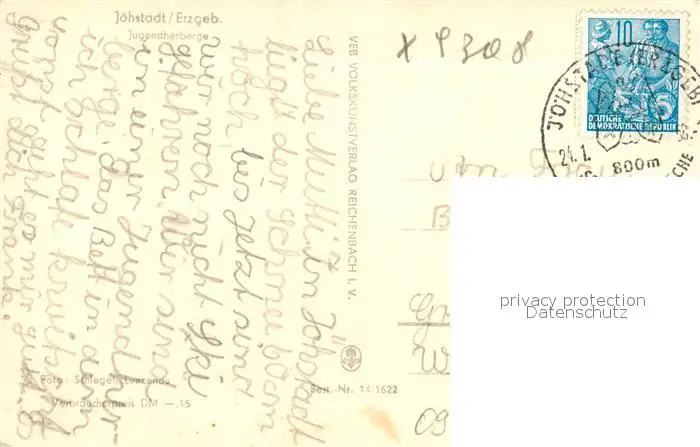 Jöhstadt/Erzgeb.
Jugendherberge
Liebe Mutti! In Jöhstadt
liegt der Schnee 60 cm
hoch, bis jetzt sind
wir noch nicht Ski
gefahren. Wir sind
in einer Jugendher-
berge. Das Bett in dem
ich schlafe knietscht
sonst geht es mir gut. Es
grüßt Dich Frank.
Foto: Schlegel, Lunzenau
Verbraucherpreis DM —,15
VEB VOLKSKUNSTVERLAG REICHENBACH I. V.
Best.-Nr. 14/1622
X 9308
10
5
DEUTSCHE
DEMOKRATISCHE REPUBLIK
JÖHSTADT (ERZGEB
24.1.
800m
privacy protection
Datenschutz
09